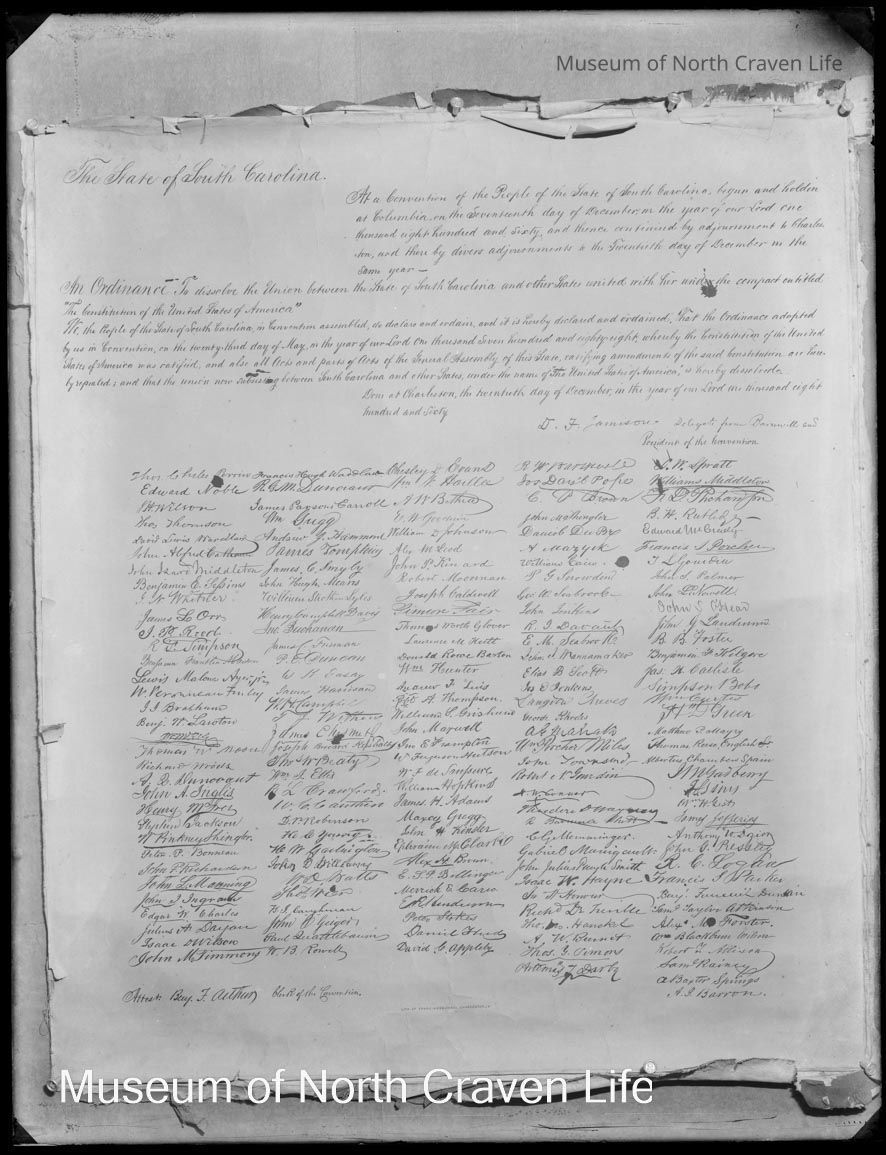 Museum of North Craven Life
The State of South Carolina.
At a Convention of the People of the State of South Carolina, begun and holden
at Columbia, on the Seventeenth day of December, in the year of our Lord one
thousand eight hundred and sixty, and thence continued by adjournment to Charles
ton, and there by divers adjournments to the Twentieth day of December in the
same year —
An Ordinance To dissolve the Union between the State of South Carolina and other States united with her under the compact entitled
"The Constitution of the United States of America"
We, the People of the State of South Carolina, in Convention assembled, do declare and ordain, and it is hereby declared and ordained, That the Ordinance adopted
by us in Convention, on the twenty-third day of May, in the year of our Lord One thousand Seven hundred and eighty eight, whereby the Constitution of the United
States of America was ratified, and also all Acts and parts of Acts of the General Assembly of this State, ratifying amendments of the said Constitution are here-
by repealed; and that the union now subsisting between South Carolina and other States, under the name of "The United States of America", is hereby dissolved.
Done at Charleston, the twentieth day of December, in the year of our Lord one thousand eight
hundred and sixty
D. F. Jamison. Delegate from Barnwell and
President of the Convention
Thos Chiles Perrin
Edward Noble
J. H. Wilson
Thos Thomson
David Lewis Wardlaw
John Alfred Calhoun
John Izard Middleton
Benjamin E. Sessions
J. N. Whitner
James L. Orr
J. P. Reed
R. F. Simpson
Benjamin Franklin
Lewis Malone Ayer, Jr.
W. Peronneau Finley
J. J. Brabham
Benj. W. Lawton
Thomas W. Moore
Richard Woods
A. Q. Dunovant
John A. Inglis
Henry McIver
Stephen Jackson
W. Pinkney Shingler
Peter P. Bonneau
John P. Richardson
John L. Manning
John J. Ingram
Edgar W. Charles
Julius A. Dargan
Isaac D. Wilson
John M. Timmons
Francis Hugh Wardlaw
R. G. M. Dunovant
James Parsons Carroll
Wm Gregg
Andrew J. Hammond
James Tompkins
James C. Smyly
John Hugh Means
William Strother Lyles
Henry Campbell Davis
Jno. Buchanan
James C. Furman
P. E. Duncan
W. K. Easley
James Harrison
W. H. Campbell
T. J. Withers
James Chesnut
Joseph Brevard Kershaw
Thos W Beaty
Wm J. Ellis
R. L. Crawford
W. C. Cauthen
D. P. Robinson
H. C. Young
H. W. Garlington
John D. Williams
W. D. Watts
Thos. Weir
H. I. Caughman
John C. Geiger
Paul Quattlebaum
W. B. Rowell
Chesley D. Evans
Wm W. Harllee
A. W. Bethea
E. W. Goodwin
William D. Johnson
Alex McLeod
John P. Kinard
Robert Moorman
Joseph Caldwell
Simeon Fair
Thomas Worth Glover
Lawrence M. Keitt
Donald Rowe Barton
Wm Hunter
Andrew F. Lewis
Robt A. Thompson
William S. Grisham
John Maxwell
Jno. E. Frampton
W. Ferguson Hutson
W. F. de Saussure
William Hopkins
James H. Adams
Maxcy Gregg
John H. Kinsler
Ephraim M. Clarke
Alex. H. Brown
E. S. P. Bellinger
Merrick E. Carn
E. R. Henderson
Peter Stokes
Daniel Flud
David C. Appleby
R. W. Barnwell
Jos. Daniel Pope
C. P. Brown
John M. Shingler
Daniel Du Pre
A. Mazyck
William Cain
P. G. Snowden
Geo. W. Seabrook
John Jenkins
R. J. Davant
E. M. Seabrook
John J. Wannamaker
Elias B. Scott
Jos. E. Jenkins
Langdon Cheves
George Rhodes
A. G. Magrath
Wm. Porcher Miles
John Townsend
Robert N. Gourdin
H. W. Conner
Theodore D. Wagner
R. Barnwell Rhett
C. G. Memminger
Gabriel Manigault
John Julius Pringle Smith
Isaac W. Hayne
Jn. H. Honour
Richd De Treville
Thos. M. Hanckel
A. W. Burnet
Thos. Y. Simons
Artemas T. Darby
L. W. Spratt
Williams Middleton
F. D. Richardson
B. H. Rutledge
Edward McCrady
Francis J. Porcher
T. L. Gourdin
John S. Palmer
John L. Nowell
John S. O'Hear
John G. Landrum
B. B. Foster
Benjamin F. Kilgore
Jas. H. Carlisle
Simpson Bobo
Wm Curtis
H. D. Green
Matthew P. Mayes
Thomas Reese English Sr
Albertus Chambers Spain
J. M. Gadberry
J. S. Sims
Wm. H. Gist
James Jefferies
Anthony W. Dozier
John G. Pressley
R. C. Logan
Francis S. Parker
Benj. Faneuil Dunkin
Saml Taylor Atkinson
Alex. M. Forster
Wm Blackburn Wilson
Robert T. Allison
Saml Rainey
A. Baxter Springs
A. I. Barron.
Attest: Benj. F. Arthur Clerk of the Convention.
Museum of North Craven Life